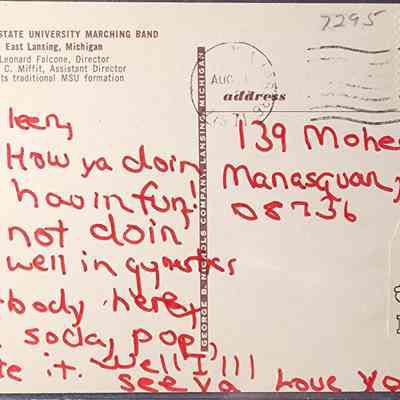 STATE UNIVERSITY MARCHING BAND
East Lansing, Michigan
Leonard Falcone, Director
C. Miffit, Assistant Director
ts traditional MSU formation
7295
AUG
address
GEORGE B. NICHOLS COMPANY, LANSING, MICHIGAN
139 Mohe
Manasquan,
08736
How ya doin
havin fun!
not doin
well in gymstics
body here
soda, pop,
te it. Well I'll
see ya Love Yo